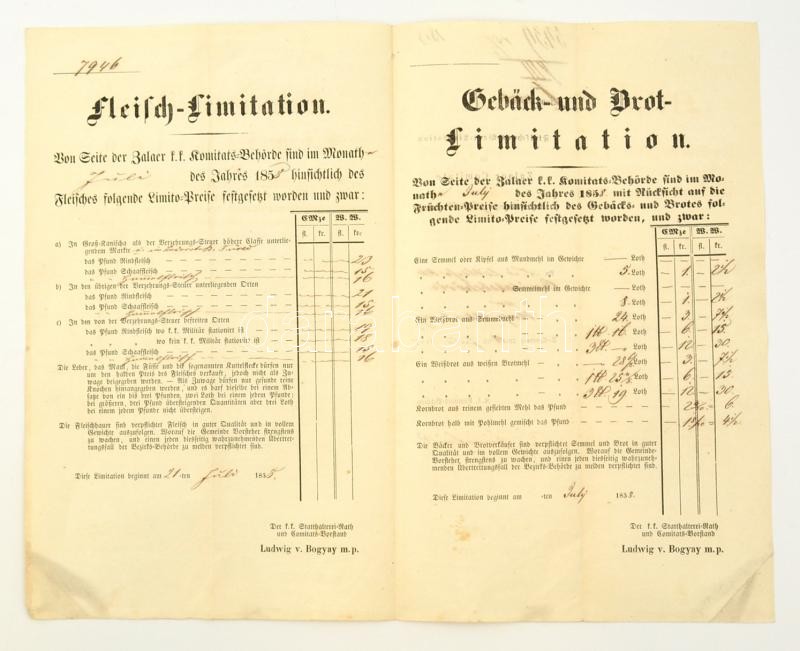 7946
Fleisch-Limitation.
Von Seite der Zalaer k.k. Komitats-Behörde sind im Monath
Juli des Jahres 1858 hinsichtlich des
Fleisches folgende Limito-Preise festgesetzt worden und zwar:
CMze W. W.
fl. kr. fl. kr.
a) In Groß-Kanischa als der Verzehrungs-Steuer höhere Classe unterlie-
gendem Markte
das Pfund Rindfleisch 23
das Pfund Schaaffleisch 15
16
b) In den übrigen der Verzehrungs-Steuer unterliegenden Orten
das Pfund Rindfleisch 21
das Pfund Schaaffleisch 15
16
c) In den von der Verzehrungs-Steuer befreiten Orten
das Pfund Rindfleisch wo k.k. Militär stationirt ist 19
" " " wo kein k.k. Militär stationirt ist 18
das Pfund Schaaffleisch 15
16
Die Leber, das Mark, die Füsse und die sogenannten Kuttelflecke dürfen nur
um den halben Preis des Fleisches verkauft, jedoch nicht als Zu-
wage beigegeben werden. — Als Zuwage dürfen nur gesunde reine
Knochen hintangegeben werden, und es darf dieselbe bei einem Ab-
satze von ein bis drei Pfunden, zwei Loth bei einem jedem Pfunde;
bei größeren, drei Pfund übersteigenden Quantitäten aber drei Loth
bei einem jedem Pfunde nicht übersteigen.
Die Fleischhauer sind verpflichtet Fleisch in guter Qualität und in vollem
Gewichte auszufolgen. Worauf die Gemeinde Vorsteher strengstens
zu wachen, und einen jeden diesfällig wahrzunehmenden Übertret-
tungsfall der Bezirks-Behörde zu melden verpflichtet sind.
Diese Limitation beginnt am 21-ten Juli 1858.
Der k.k. Statthalterei-Rath
und Comitats-Vorstand
Ludwig v. Bogyay m.p.
Gebäck- und Brot-
Limitation.
Von Seite der Zalaer k.k. Komitats-Behörde sind im Mo-
nath July des Jahres 1858 mit Rücksicht auf die
Früchten-Preise hinsichtlich des Gebäcks- und Brotes fol-
gende Limito-Preise festgesetzt worden, und zwar:
CMze W. W.
fl. kr. fl. kr.
Eine Semmel oder Kipfel aus Mundmehl im Gewichte — Loth
5. Loth — 1. — 2½
Semmelmehl im Gewichte — Loth
8. Loth — 1. — 2½
Ein Weißbrot aus Semmelmehl 24. Loth — 3. — 7½
1 ℔ 16. Loth — 6. — 15
3 ℔ — Loth — 12 — 30
Ein Weißbrot aus weisen Brotmehl Loth — 3. — 7½
Loth — 6 — 15
3 ℔ 19 Loth — 12 — 30
Kornbrot aus reinen gesiebten Mehl das Pfund 6
Kornbrot halb mit Pohlmehl gemischt das Pfund
Die Bäcker und Brotverkäufer sind verpflichtet Semmel und Brot in guter
Qualität und im vollem Gewichte auszufolgen. Worauf die Gemeinde-
Vorsteher, strengstens zu wachen, und einen jeden diesfällig wahrzuneh-
menden Übertrettungsfall der Bezirks-Behörde zu melden verpflichtet sind.
Diese Limitation beginnt am -ten July 1858.
Der k.k. Statthalterei-Rath
und Comitats-Vorstand
Ludwig v. Bogyay m.p.
darabanth